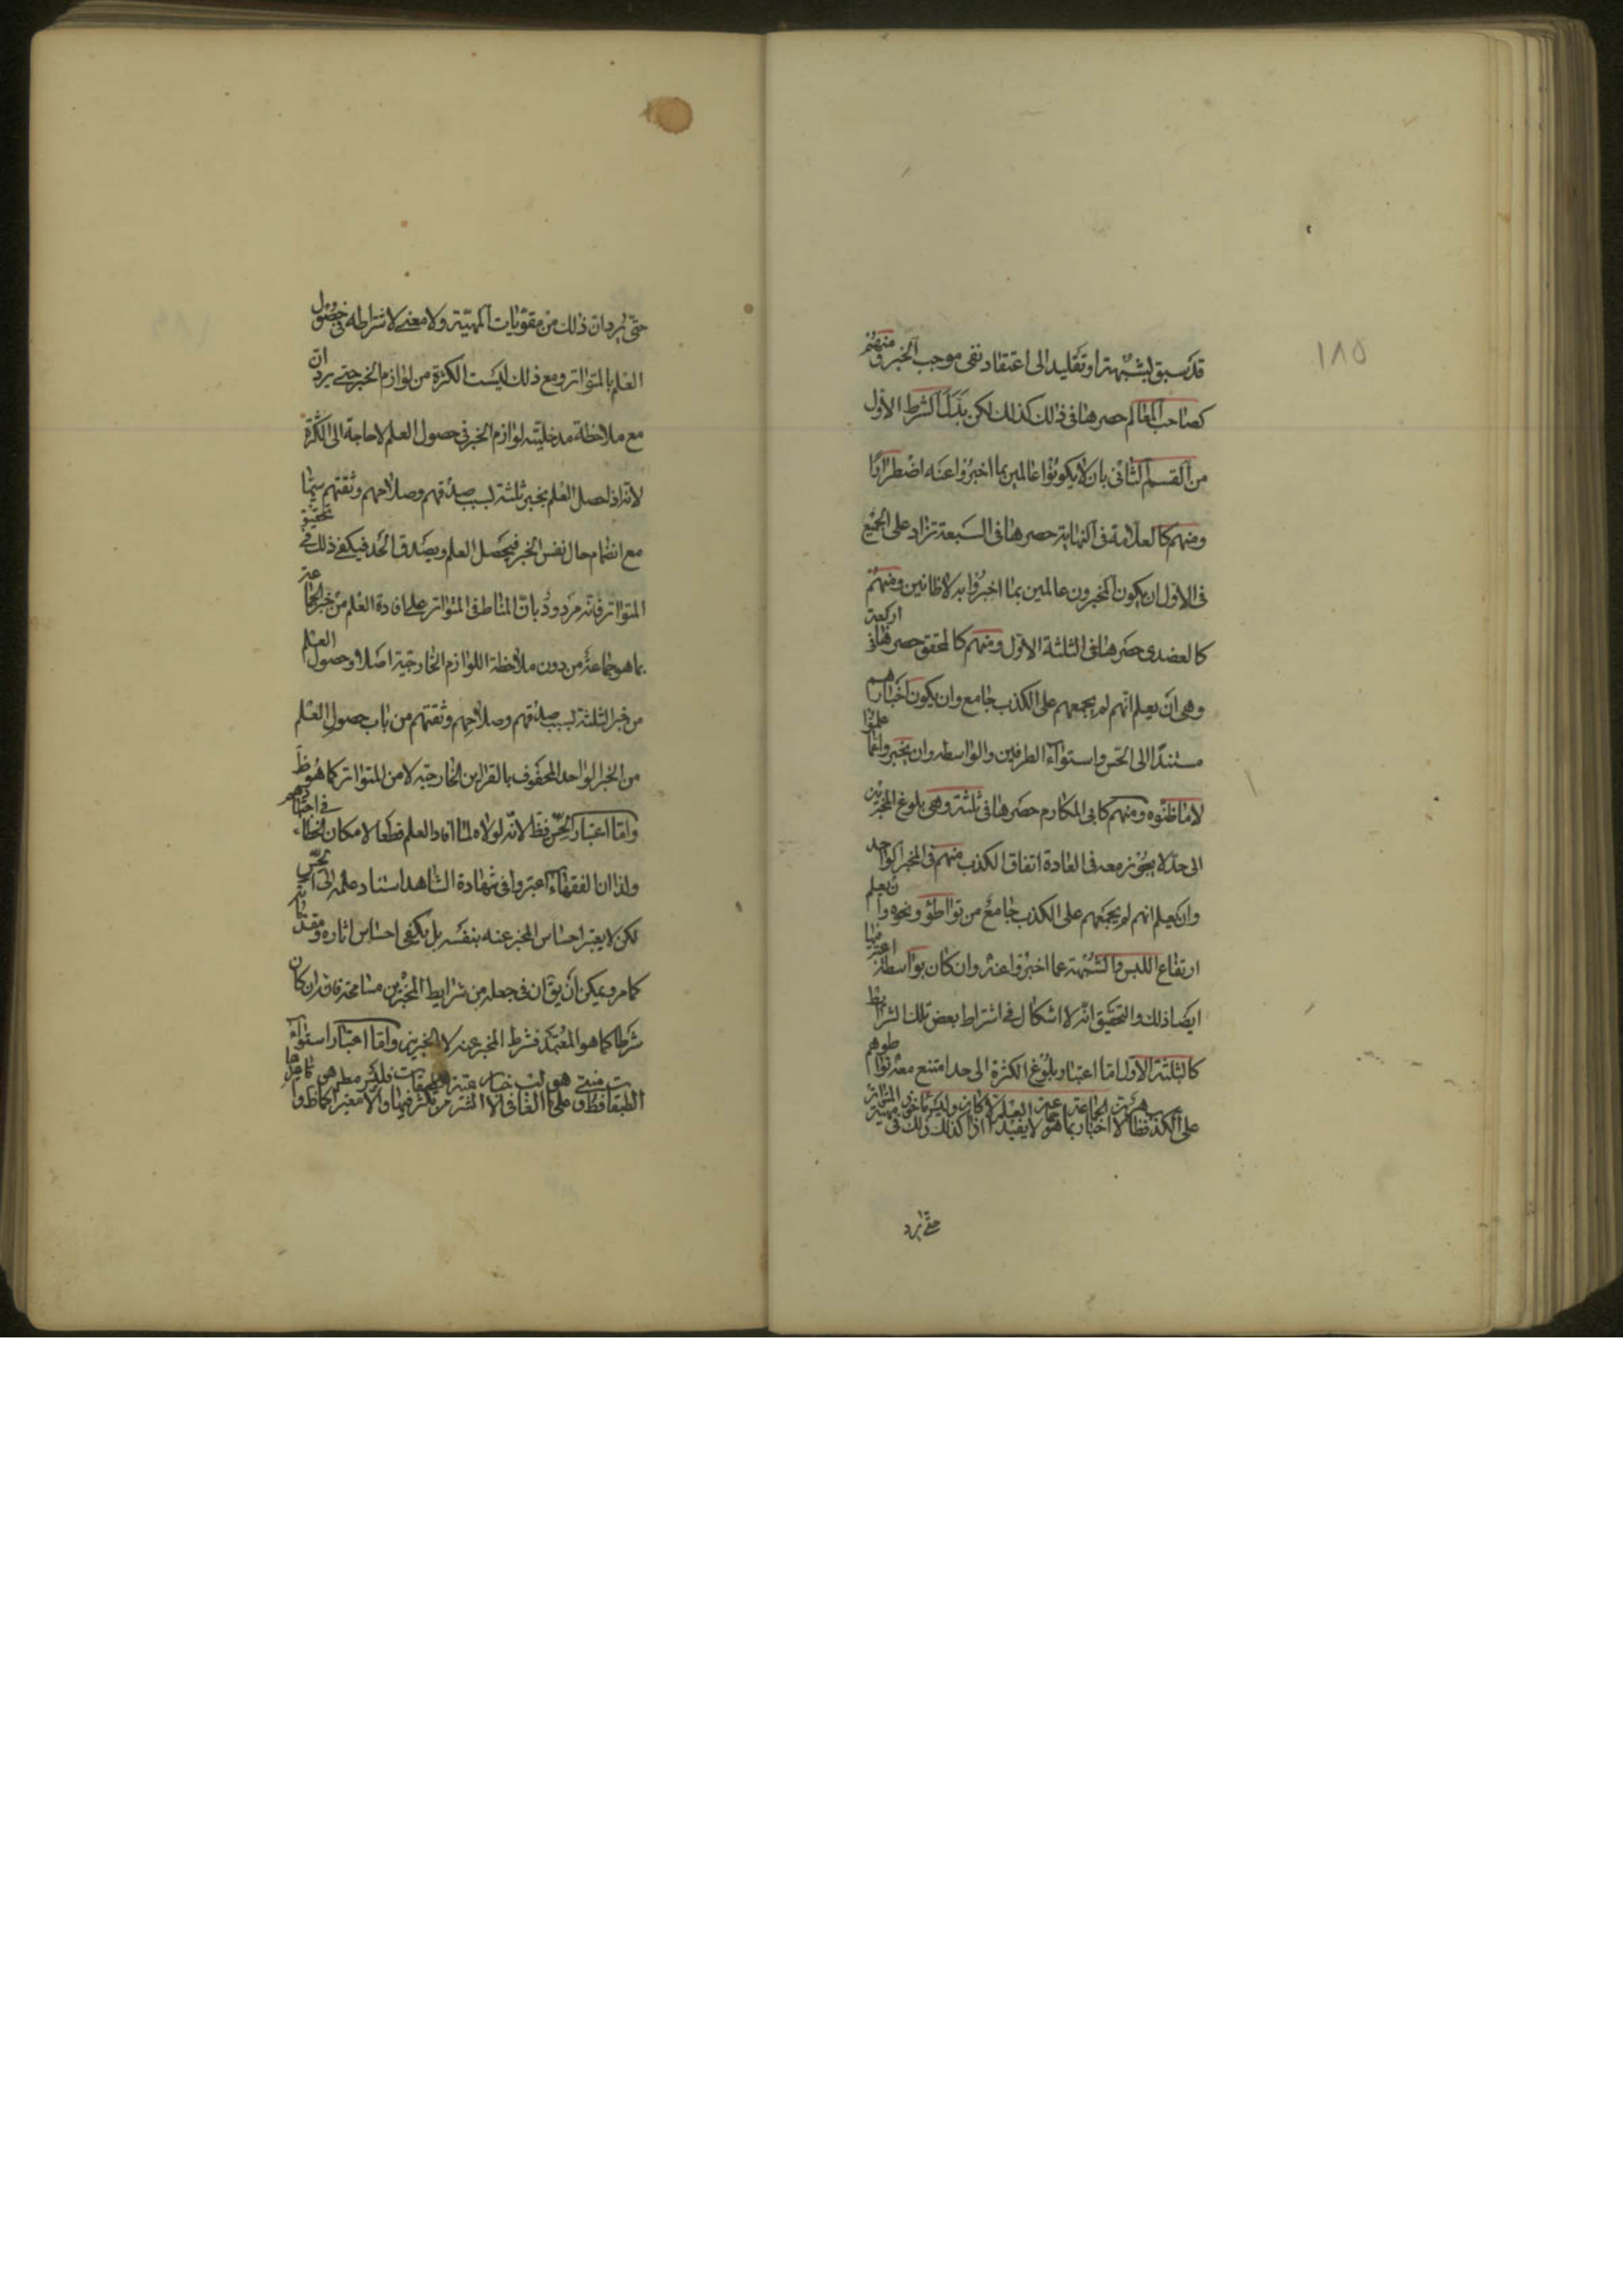 ١٨٥
قد سبق بشبهة او تقليد الى اعتقاد نفى موجب الخبر ومنهم
كصاحب المعالم حصرها فى ذلك كذلك لكن بدل الشرط الاول
من القسم الثانى بان لا يكونوا عالمين بما اخبروا عنه اضطرارا
ومنهم كالعلامة فى النهاية حصرها فى السبعة تزاد على الجميع
فى الاول ان يكون المخبرون عالمين بما اخبروا به لا ظانين ومنهم
كالعضدى حصرها فى الثلثة الاول ومنهم كالمحقق حصرها فى اربعة
وهى ان يعلم انهم لم يجمعهم على الكذب جامع وان يكون اخبارهم
مستندا الى الحس واستواء الطرفين والواسطه وان يخبروا عما علموا
لا ما ظنوه ومنهم كابى المكارم حصرها فى ثلثة وهى بلوغ المخبرين
الى حد لا يجوز معه فى العادة اتفاق الكذب منهم فى المخبر الواحد
وان يعلم انهم لم يجمعهم على الكذب جامع من تواطؤ ونحوه وان يعلم
ارتفاع اللبس والشبهة عما اخبروا عنه وان كان بواسطة اعتبر فيها
ايضا ذلك والتحقيق انه لا اشكال فى اشتراط بعض تلك الشرائط
كالثلثة الاول اما اعتبار بلوغ الكثرة الى حد امتنع معه تواطوهم
على الكذب فظ
حتى يرد
حتى يرد ان ذلك من مقويات المهية ولا معنى لاشتراطه فى حصول
العلم بالمتواتر ومع ذلك ليست الكثرة من لوازم الخبر حتى يرد ان
مع ملاحظة مدخلية لوازم الخبر فى حصول العلم لا حاجة الى الكثرة
لانه اذا حصل العلم بخبر ثلثة بسبب صدقهم وصلاحهم وثقتهم سيما
مع انضمام حال نفس الخبر فيحصل العلم ويصدق الحد فيكفى ذلك فى تحقيق
المتواتر فانه مردود بان المناط فى المتواتر على افادة العلم من خبر الجماعة
بما هو جماعة من دون ملاحظة اللوازم الخارجية اصلا وحصول العلم
من خبر الثلثة بسبب صدقهم وصلاحهم وثقتهم من باب حصول العلم
من الخبر الواحد المحفوف بالقراين الخارجيه لا من المتواتر كما هو ظ
واما اعتبار الحس فظ لانه لولاه لما افاد العلم قطعا لامكان الخطاء فى اجتهادهم
ولذا ان الفقهاء اعتبروا فى شهادة الشاهد استناد علمه الى الحس
لكن لا يعتبر احساس المخبر عنه بنفسه بل يكفى احساس اثاره
كما مر ويمكن ان يق ان فى جعله من شرايط المخبرين مسامحة فانه ان كان
شرطا كما هو المعتمد فشرط المخبر عنه لا المخبرين واما اعتبار استواء